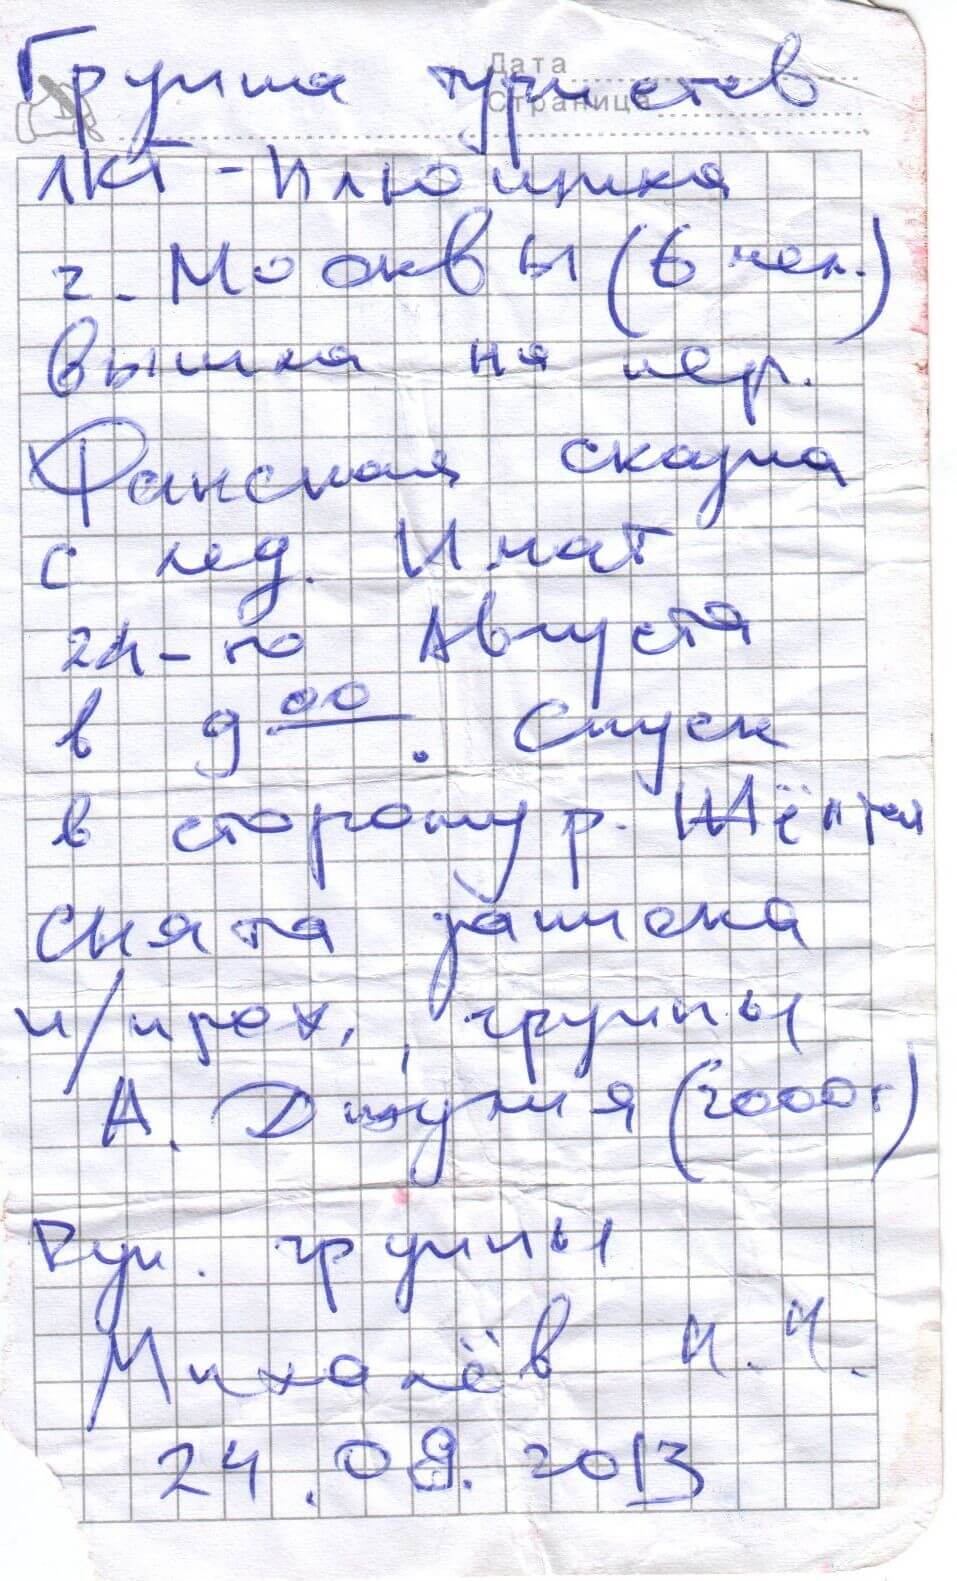 Дата
Страница
Группа туристов
ЛКТ - Илюшка
г. Москвы (6 чел.)
вышла на пер.
Фанская сказка
с лед. Имат
24-го Августа
в 9⁰⁰. Спуск
в сторону р.
Снята записка
п/прох. группы
А. Джулия (2000г)
Рук. группы
Михалёв И. И.
24.08.2013